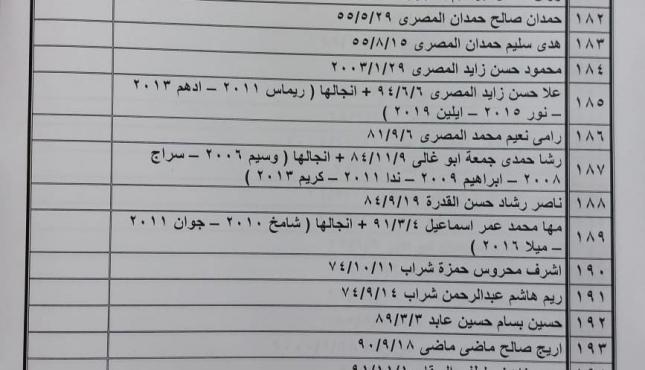 ١٨٢ حمدان صالح حمدان المصرى ٥٥/٥/٢٩
١٨٣ هدى سليم حمدان المصرى ٥٥/٨/١٥
١٨٤ محمود حسن زايد المصرى ٢٠٠٣/١/٢٩
١٨٥ علا حسن زايد المصرى ٩٤/٦/٦ + انجالها ( ريماس ٢٠١١ – ادهم ٢٠١٣
– نور ٢٠١٥ – ايلين ٢٠١٩ )
١٨٦ رامى نعيم محمد المصرى ٨١/٩/٦
١٨٧ رشا حمدى جمعة ابو غالى ٨٤/١١/٩ + انجالها ( وسيم ٢٠٠٦ – سراج
٢٠٠٨ – ابراهيم ٢٠٠٩ – ندا ٢٠١١ – كريم ٢٠١٣ )
١٨٨ ناصر رشاد حسن القدرة ٨٤/٩/١٩
١٨٩ مها محمد عمر اسماعيل ٩١/٣/٤ + انجالها ( شامخ ٢٠١٠ – جوان ٢٠١١
– ميلا ٢٠١٦ )
١٩٠ اشرف محروس حمزة شراب ٧٤/١٠/١١
١٩١ ريم هاشم عبدالرحمن شراب ٧٤/٩/١٤
١٩٢ حسين بسام حسين عابد ٨٩/٣/٣
١٩٣ اريج صالح ماضى ماضى ٩٠/٩/١٨